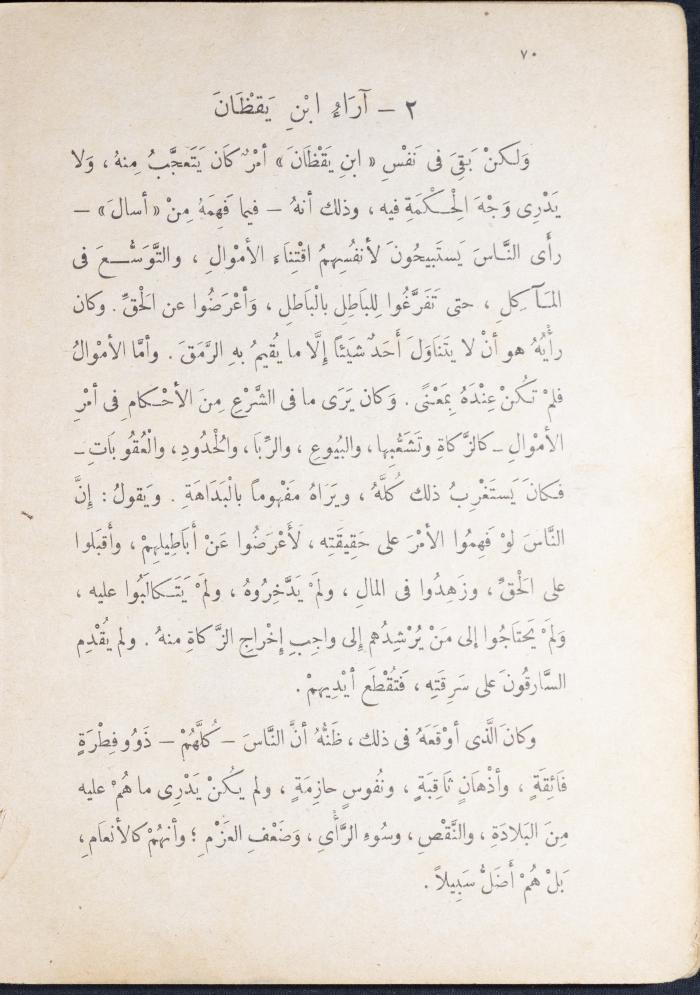 ٧٠
٢ – آرَاءُ ابْنِ يَقْظَانَ
وَلكنْ بَقِىَ فى نَفْسِ « ابنِ يَقْظَانَ » أمْرٌ كَان يَتَعَجَّبُ مِنهُ ، وَلا
يَدْرِى وَجْهَ الْحِكْمَةِ فيه ، وذلك أنهُ – فيما فَهِمَهُ مِنْ « أسالَ » –
رأَى النَّاسَ يَستَبيحُونَ لأنفُسِهِمُ اقْتِنَاءَ الأموْالِ ، والتَّوَسُّعَ فى
المَآكِلِ ، حتى تَفَرَّغُوا لِلبَاطِلِ بالْبَاطلِ ، وَأعْرَضُوا عن الْحَقِّ . وكان
رأْيُهُ هو أنْ لا يتَنَاوَلَ أَحَدٌ شيْئاً إلَّا ما يُقيمُ بهِ الرَّمَقَ . وأمَّا الأموْالُ
فلمْ تكُنْ عِنْدَهُ بِمَعْنًى . وَكان يَرَى ما فى الشَّرْعِ مِنَ الأحْكامِ فى أمْرِ
الأموْالِ – كالزَّكاةِ وتَشَعُّبِها ، والبُيوعِ ، والرِّبَا ، والْحُدُودِ ، والْعُقُوبَاتِ –
فكانَ يَستَغْرِبُ ذلك كُلَّهُ ، ويَرَاهُ مَفْهوماً بالْبَدَاهَةِ . ويَقولُ : إنَّ
النَّاسَ لوْ فَهِمُوا الأمْرَ على حَقِيقَتِه ، لَأعْرَضُوا عَنْ أبَاطِيلِهِمْ ، وأقبَلوا
على الْحَقِّ ، وزَهِدُوا فى المَالِ ، ولَمْ يَدَّخِرُوهُ ، ولَمْ يَتَكالَبُوا عليه ،
وَلَمْ يَحتَاجُوا إلى مَنْ يُرْشِدُهم إلى واجِبِ إخْراجِ الزَّكاةِ منهُ . ولم يُقْدِمِ
السَّارِقُونَ على سَرِقَتِه ، فَتُقْطَع أيْدِيهِمْ .
وكانَ الَّذى أوْقَعَهُ فى ذلك ، ظَنُّهُ أنَّ النَّاسَ – كُلَّهُمْ – ذَوُو فِطْرَةٍ
فَائِقَةٍ ، وأذْهَانٍ ثَاقِبَةٍ ، ونُفُوسٍ حازِمَةٍ ، ولم يكُنْ يَدْرِى ما هُمْ عليه
مِنَ البَلادَةِ ، والنَّقْصِ ، وسُوءِ الرَّأْىِ ، وَضَعْفِ العَزْمِ ؛ وأنهُمْ كالأنعَامِ ،
بَلْ هُمْ أضَلُّ سَبِيلاً .